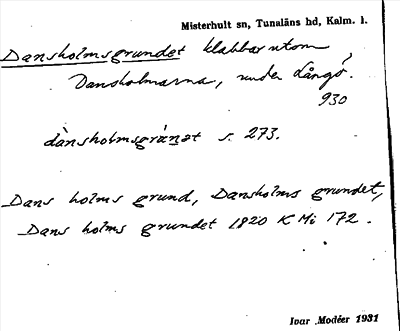 Misterhult sn, Tunaläns hd, Kalm. l.
Dansholmsgrundet klabbar utom
Dansholmarna, under Långö.
930
dànsholmsgrúnət s. 273.
Dans holms grund, Dansholms grundet,
Dans holms grundet 1820 K Mi 172.
Ivar Modéer 1931